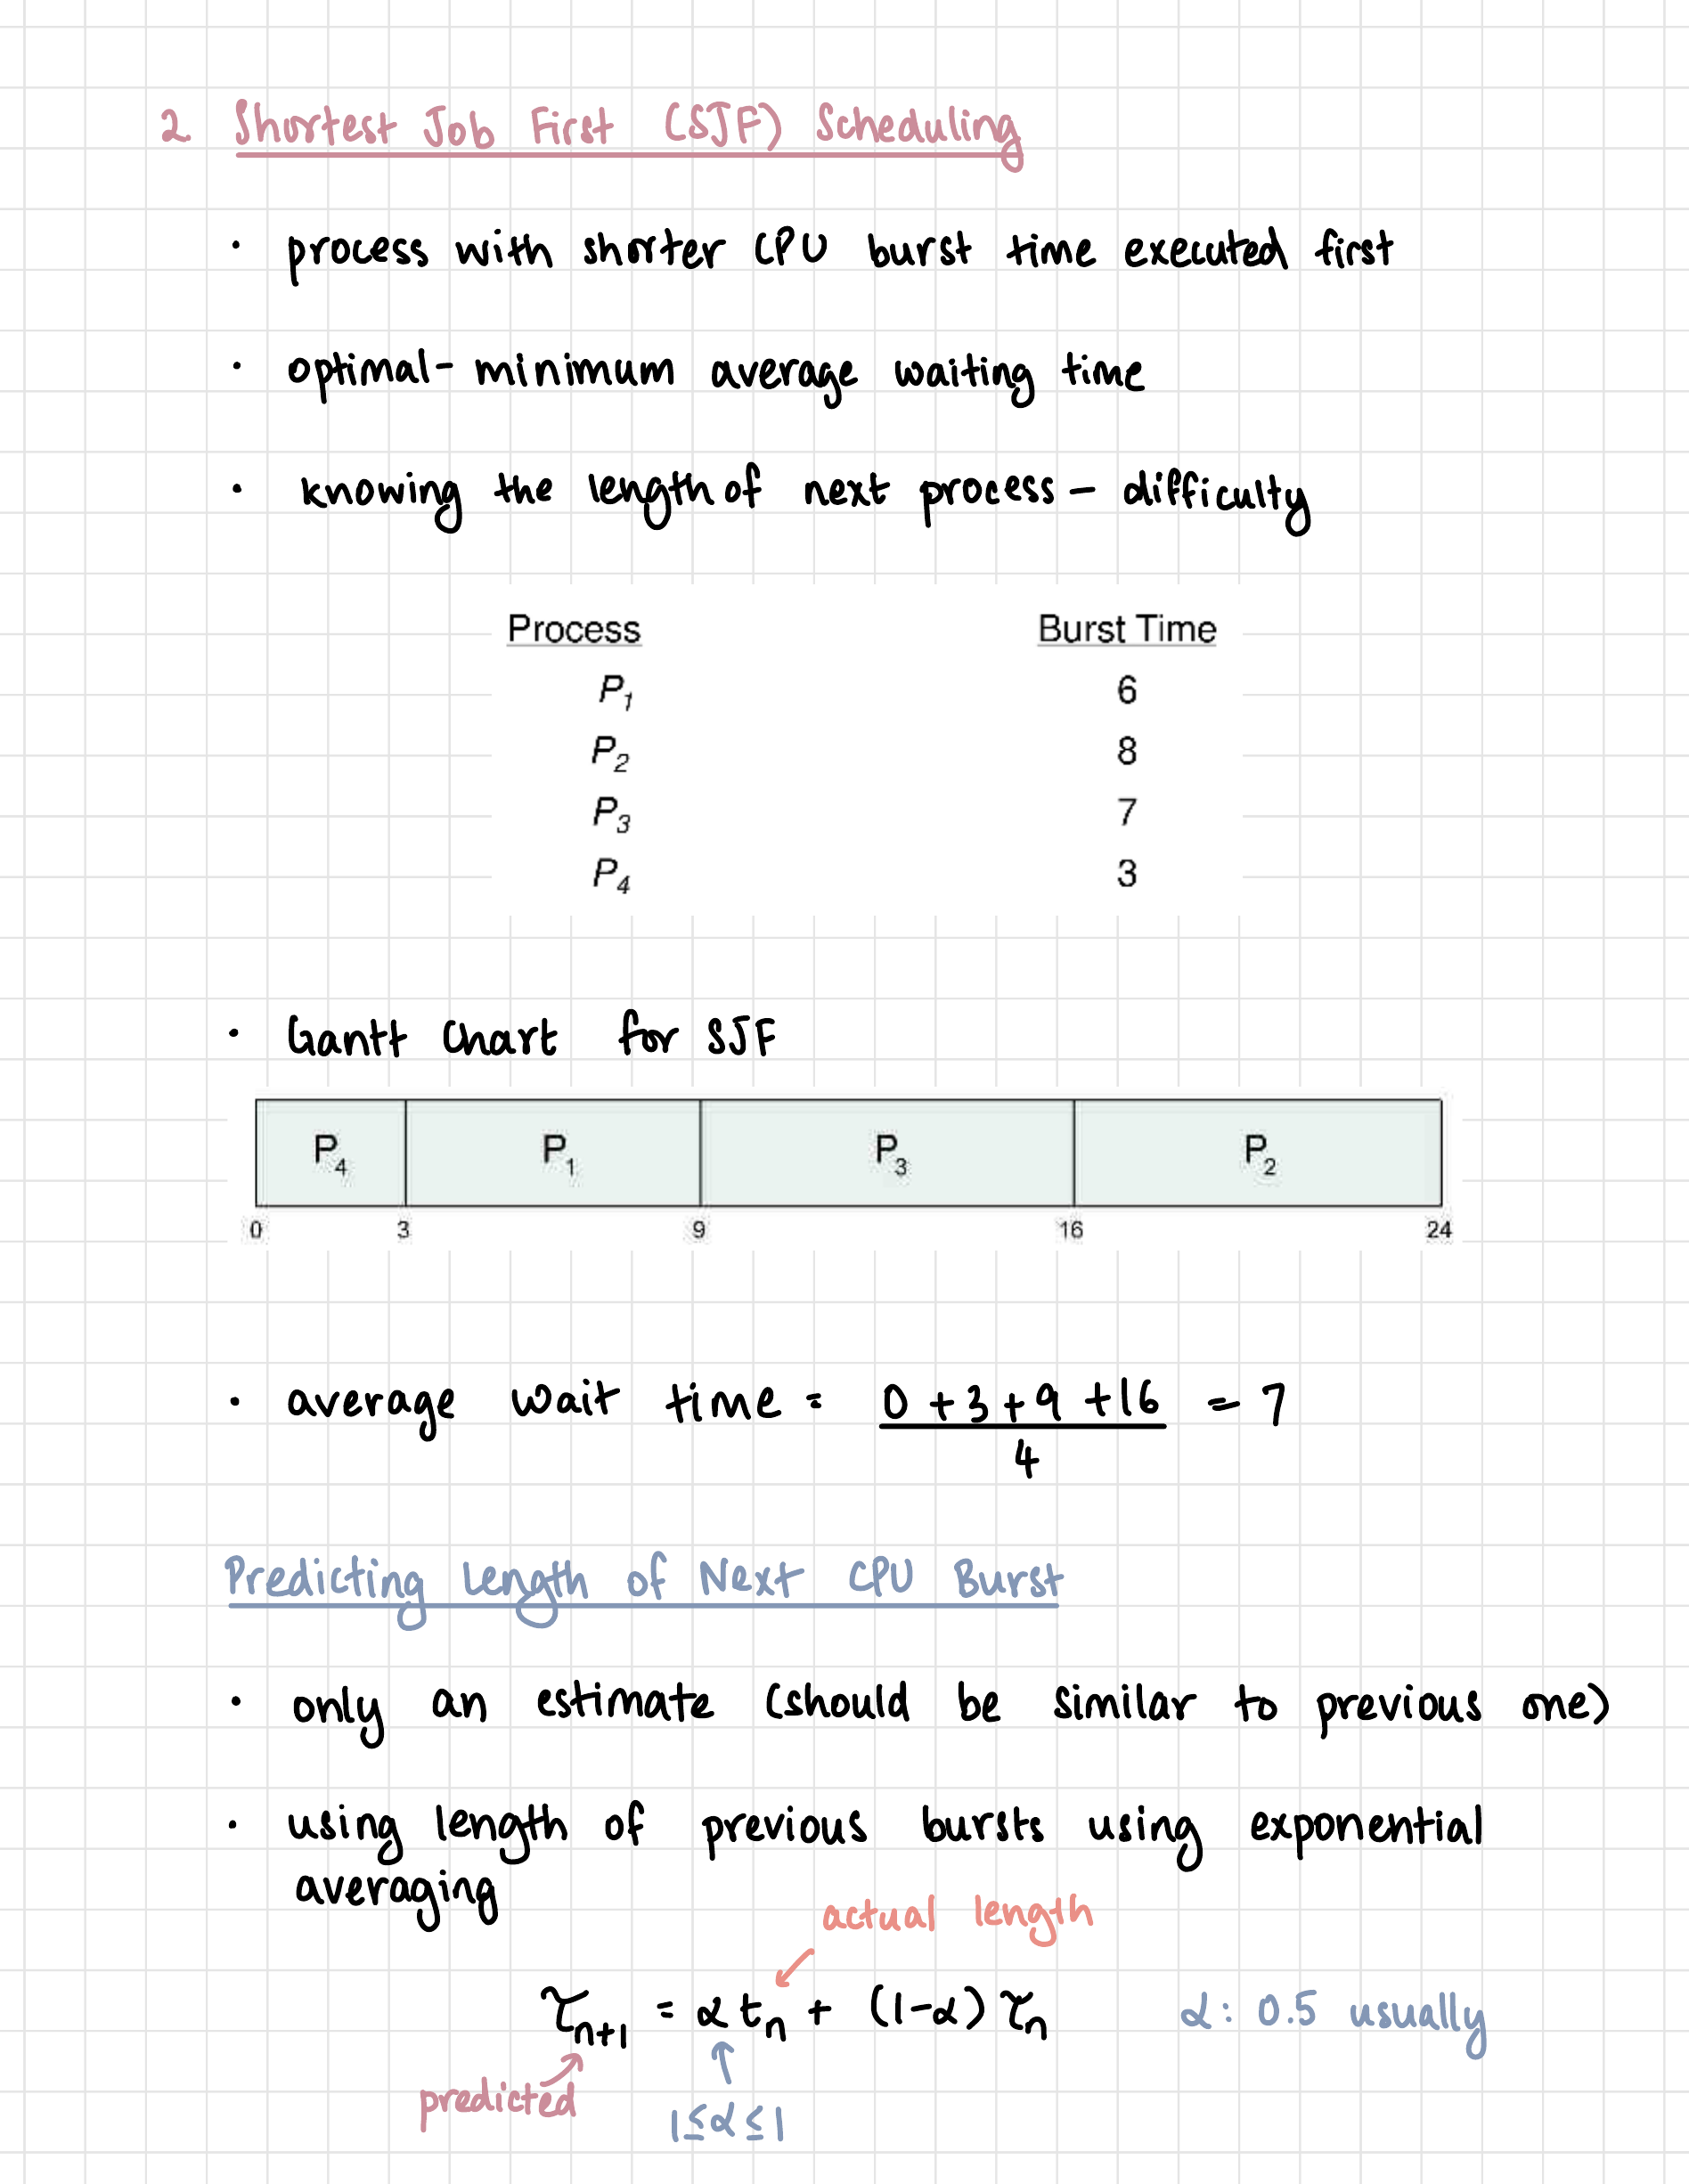 2. Shortest Job First (SJF) Scheduling
• process with shorter CPU burst time executed first
• optimal - minimum average waiting time
• knowing the length of next process - difficulty
Process Burst Time
P1 6
P2 8
P3 7
P4 3
• Gantt Chart for SJF
P4 P1 P3 P2
0 3 9 16 24
• average wait time = (0 + 3 + 9 + 16)/4 = 7
Predicting Length of Next CPU Burst
• only an estimate (should be similar to previous one)
• using length of previous bursts using exponential
averaging
actual length
τn+1 = α tn + (1-α) τn α: 0.5 usually
predicted
1≤α≤1